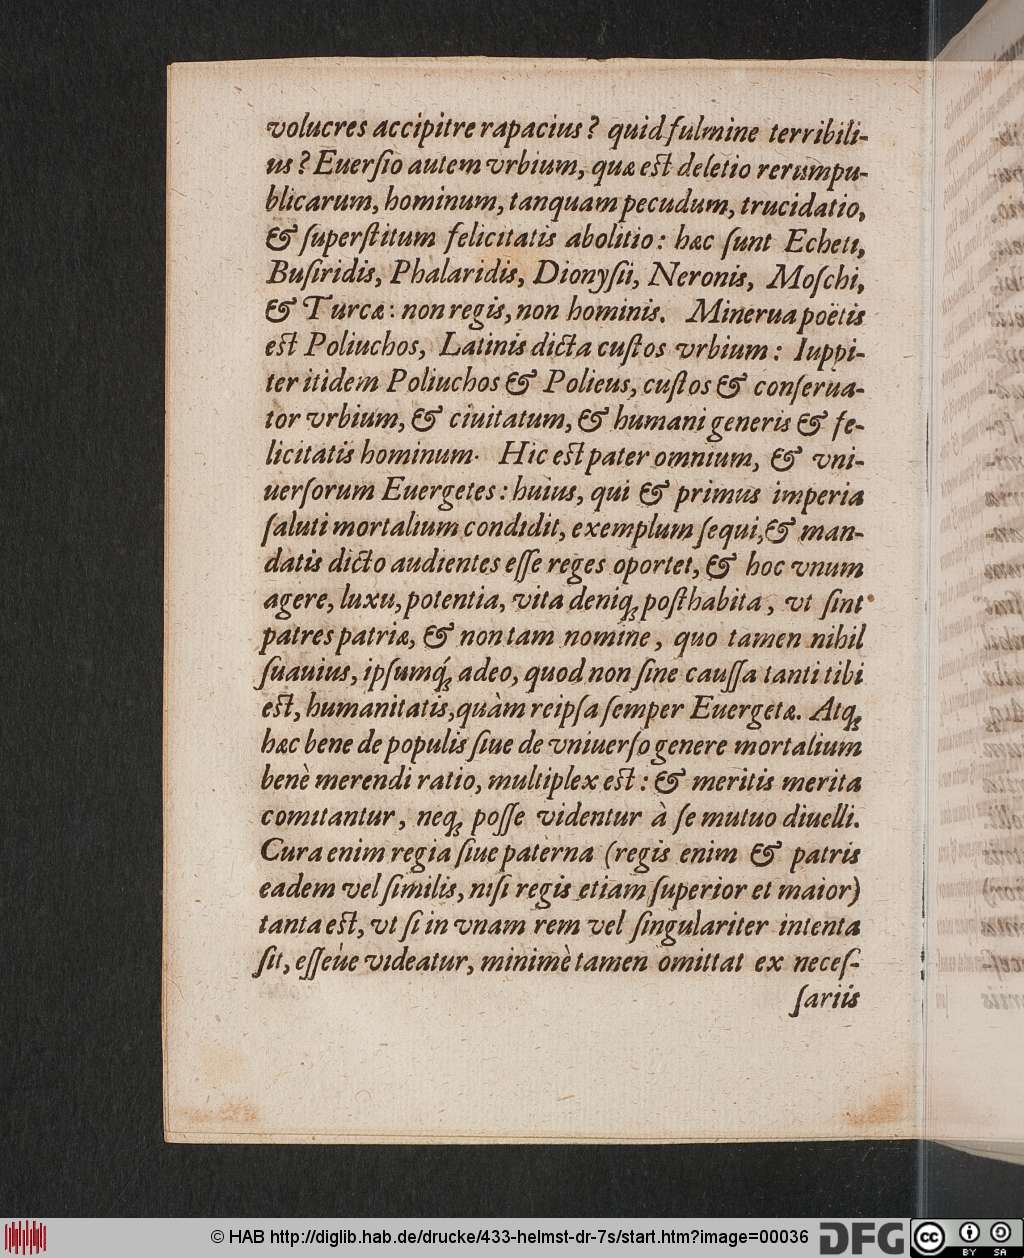 volucres accipitre rapacius? quid fulmine terribili-
us? Euerſio autem vrbium, quæ eſt deletio rerumpu-
blicarum, hominum, tanquam pecudum, trucidatio,
& ſuperſtitum felicitatis abolitio: hæc ſunt Echeti,
Buſiridis, Phalaridis, Dionyſii, Neronis, Moſchi,
& Turcæ: non regis, non hominis. Minerua poëtis
eſt Poliuchos, Latinis dicta cuſtos vrbium: Iuppi-
ter itidem Poliuchos & Polieus, cuſtos & conſerua-
tor vrbium, & ciuitatum, & humani generis & fe-
licitatis hominum. Hic eſt pater omnium, & vni-
uerſorum Euergetes: huius, qui & primus imperia
ſaluti mortalium condidit, exemplum ſequi, & man-
datis dicto audientes eſſe reges oportet, & hoc vnum
agere, luxu, potentia, vita deniq; poſthabita, vt ſint
patres patriæ, & non tam nomine, quo tamen nihil
ſuauius, ipſumq́; adeo, quod non ſine cauſſa tanti tibi
eſt, humanitatis, quàm reipſa ſemper Euergetæ. Atq;
hæc bene de populis ſiue de vniuerſo genere mortalium
benè merendi ratio, multiplex eſt: & meritis merita
comitantur, neq; poſſe videntur à ſe mutuo diuelli.
Cura enim regia ſiue paterna (regis enim & patris
eadem vel ſimilis, niſi regis etiam ſuperior et maior)
tanta eſt, vt ſi in vnam rem vel ſingulariter intenta
ſit, eſſeúe videatur, minimè tamen omittat ex neceſ-
ſariis
© HAB http://diglib.hab.de/drucke/433-helmst-dr-7s/start.htm?image=00036
DFG
cc BY SA